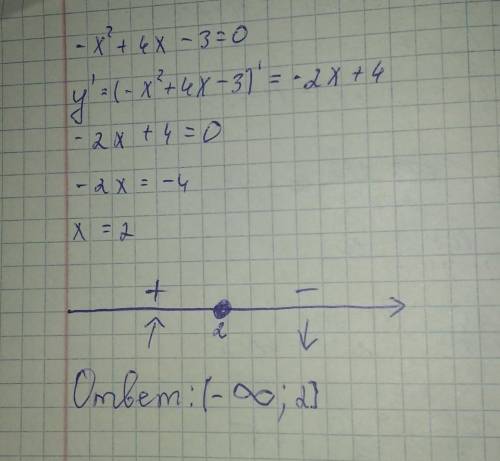 -x²+4x-3=0
y'=(-x²+4x-3)'=-2x+4
-2x+4=0
-2x=-4
x=2
+ -
2
Ответ:(-∞;2]